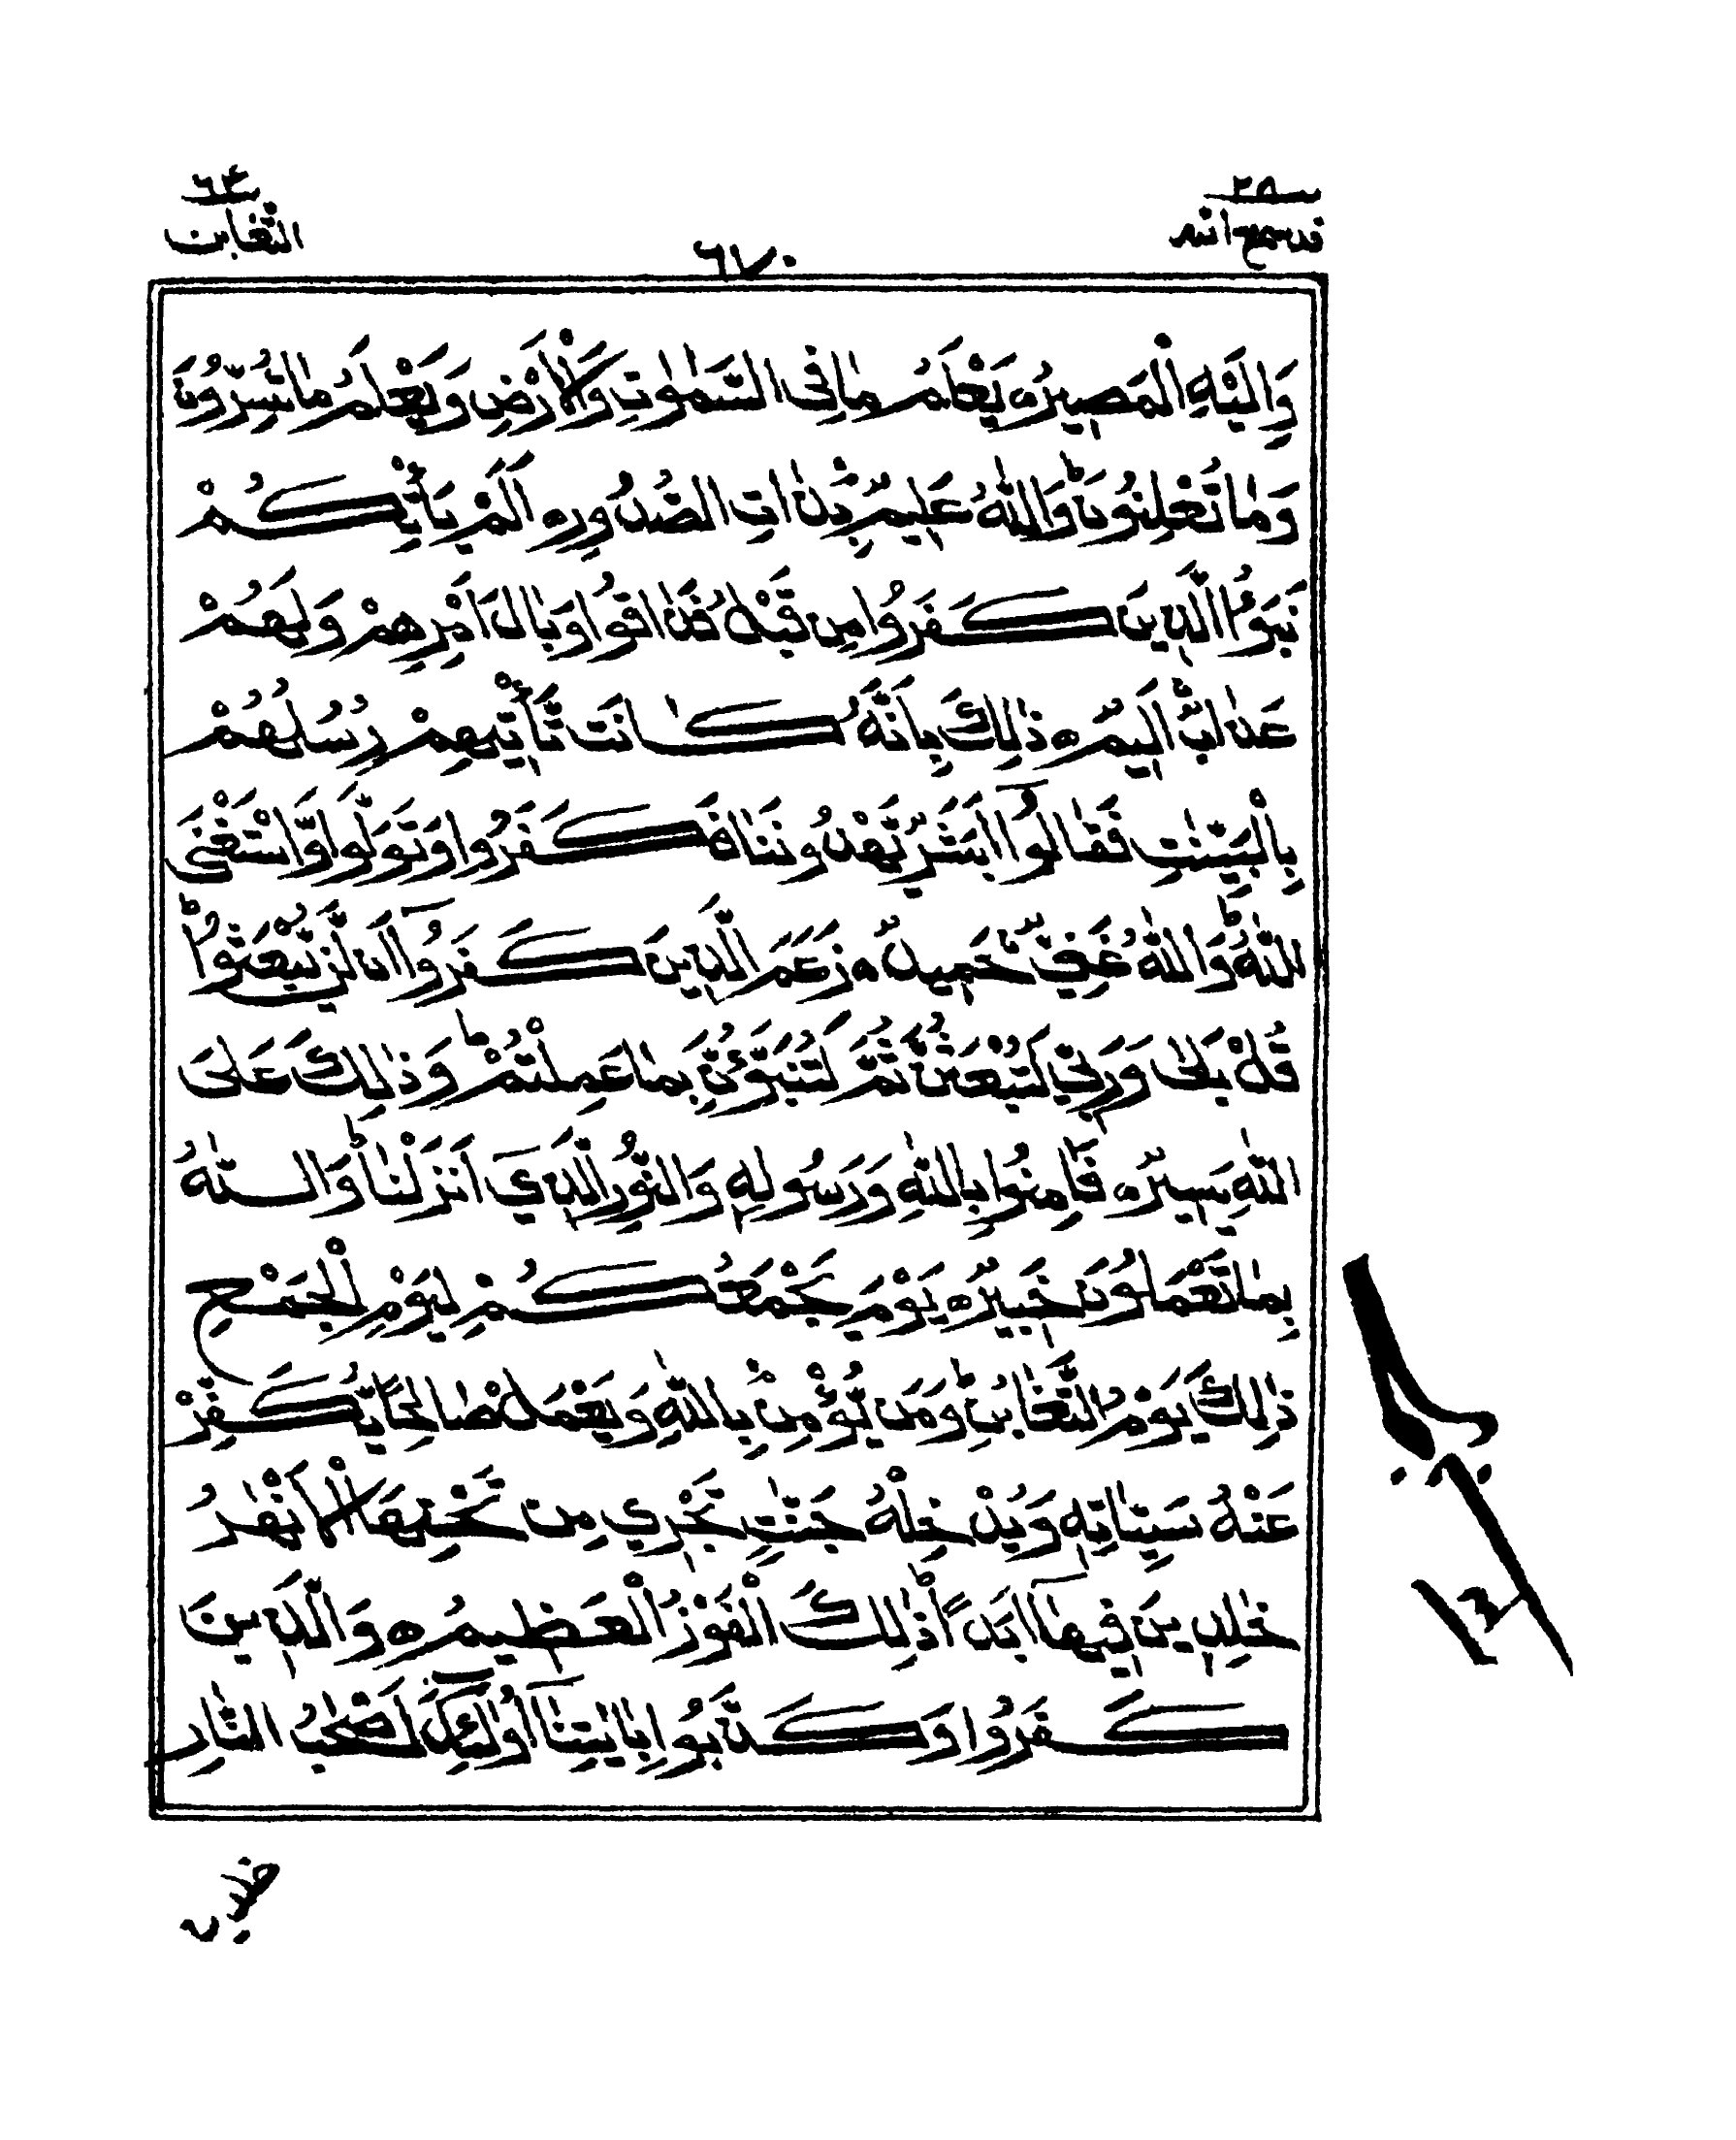 ٢٨
قد سمع الله
٦٧٠
٦٤
التغابن
وَاِلَيْهِ الْمَصِيْرُه يَعْلَمُ مَا فِى السَّمٰوٰتِ وَالْاَرْضِ وَيَعْلَمُ مَا تُسِرُّوْنَ
وَمَا تُعْلِنُوْنَ ؕ وَاللّٰهُ عَلِيْمٌۢ بِذَاتِ الصُّدُوْرِه اَلَمْ يَاْتِكُمْ
نَبَؤُا الَّذِيْنَ كَفَرُوْا مِنْ قَبْلُ فَذَاقُوْا وَبَالَ اَمْرِهِمْ وَلَهُمْ
عَذَابٌ اَلِيْمٌه ذٰلِكَ بِاَنَّهٗ كَانَتْ تَّاْتِيْهِمْ رُسُلُهُمْ
بِالْبَيِّنٰتِ فَقَالُوْٓا اَبَشَرٌ يَّهْدُوْنَنَا فَكَفَرُوْا وَتَوَلَّوْا وَّاسْتَغْنَى
اللّٰهُ ؕ وَاللّٰهُ غَنِيٌّ حَمِيْدٌه زَعَمَ الَّذِيْنَ كَفَرُوْٓا اَنْ لَّنْ يُّبْعَثُوْا ؕ
قُلْ بَلٰى وَرَبِّيْ لَتُبْعَثُنَّ ثُمَّ لَتُنَبَّؤُنَّ بِمَا عَمِلْتُمْ ؕ وَذٰلِكَ عَلَى
اللّٰهِ يَسِيْرٌه فَاٰمِنُوْا بِاللّٰهِ وَرَسُوْلِهٖ وَالنُّوْرِ الَّذِيْٓ اَنْزَلْنَا ؕ وَاللّٰهُ
بِمَا تَعْمَلُوْنَ خَبِيْرٌه يَوْمَ يَجْمَعُكُمْ لِيَوْمِ الْجَمْعِ
ذٰلِكَ يَوْمُ التَّغَابُنِ ؕ وَمَنْ يُّؤْمِنْۢ بِاللّٰهِ وَيَعْمَلْ صَالِحًا يُّكَفِّرْ
عَنْهُ سَيِّاٰتِهٖ وَيُدْخِلْهُ جَنّٰتٍ تَجْرِيْ مِنْ تَحْتِهَا الْاَنْهٰرُ
خٰلِدِيْنَ فِيْهَآ اَبَدًا ؕ ذٰلِكَ الْفَوْزُ الْعَظِيْمُه وَالَّذِيْنَ
كَفَرُوْا وَكَذَّبُوْا بِاٰيٰتِنَآ اُولٰٓئِكَ اَصْحٰبُ النَّارِ